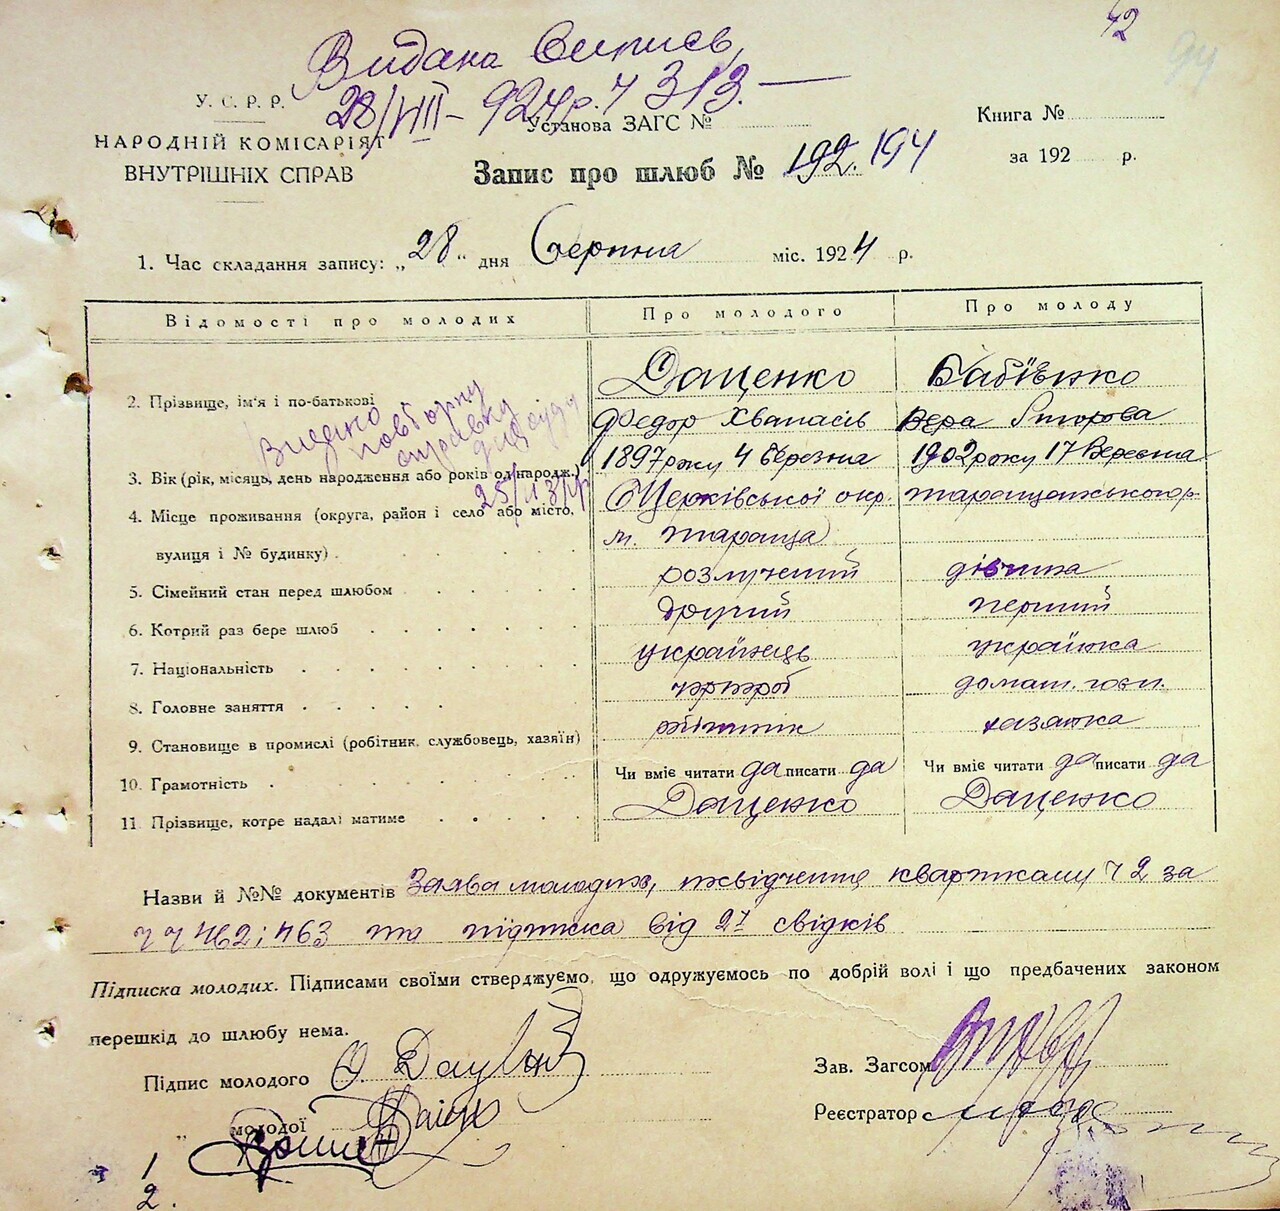 42
94
Видана Випись
28/VIII – 924 р. ч 313. —
У. С. Р. Р.
НАРОДНІЙ КОМІСАРІЯТ
ВНУТРІШНІХ СПРАВ
Установа ЗАГС №
Запис про шлюб № 192. 194
Книга №
за 192 р.
1. Час складання запису: „28“ дня Серпня міс. 1924 р.
Відомості про молодих Про молодого Про молоду
2. Прізвище, ім'я і по-батькові Даценко Бабієнко
Федор Хванасів Вера Яторова
Видано повторну справку для суду
25/I 31 р
3. Вік (рік, місяць, день народження або років од народж.) 1897 року 4 березня 1902 року 17 Вересня
4. Місце проживання (округа, район і село або місто, Б Церківської окр. Таращанського р.
вулиця і № будинку) . м. Тараща
5. Сімейний стан перед шлюбом розлучений дівчина
6. Котрий раз бере шлюб другий перший
7. Національність українець українка
8. Головне заняття чорнроб домаш. госп.
9. Становище в промислі (робітник, службовець, хазяїн) хазяйка
10. Грамотність Чи вміє читати да писати да Чи вміє читати да писати да
11. Прізвище, котре надалі матиме Даценко Даценко
Назви й №№ документів Заява молодих, посвідчення кварткому ч 2 за
ч ч 462; 463 та підписка від 2х свідків
Підписка молодих. Підписами своїми стверджуємо, що одружуємось по добрій волі і що предбачених законом
перешкід до шлюбу нема.
Підпис молодого
Зав. Загсом
„ молодої
Реєстратор
1
2.